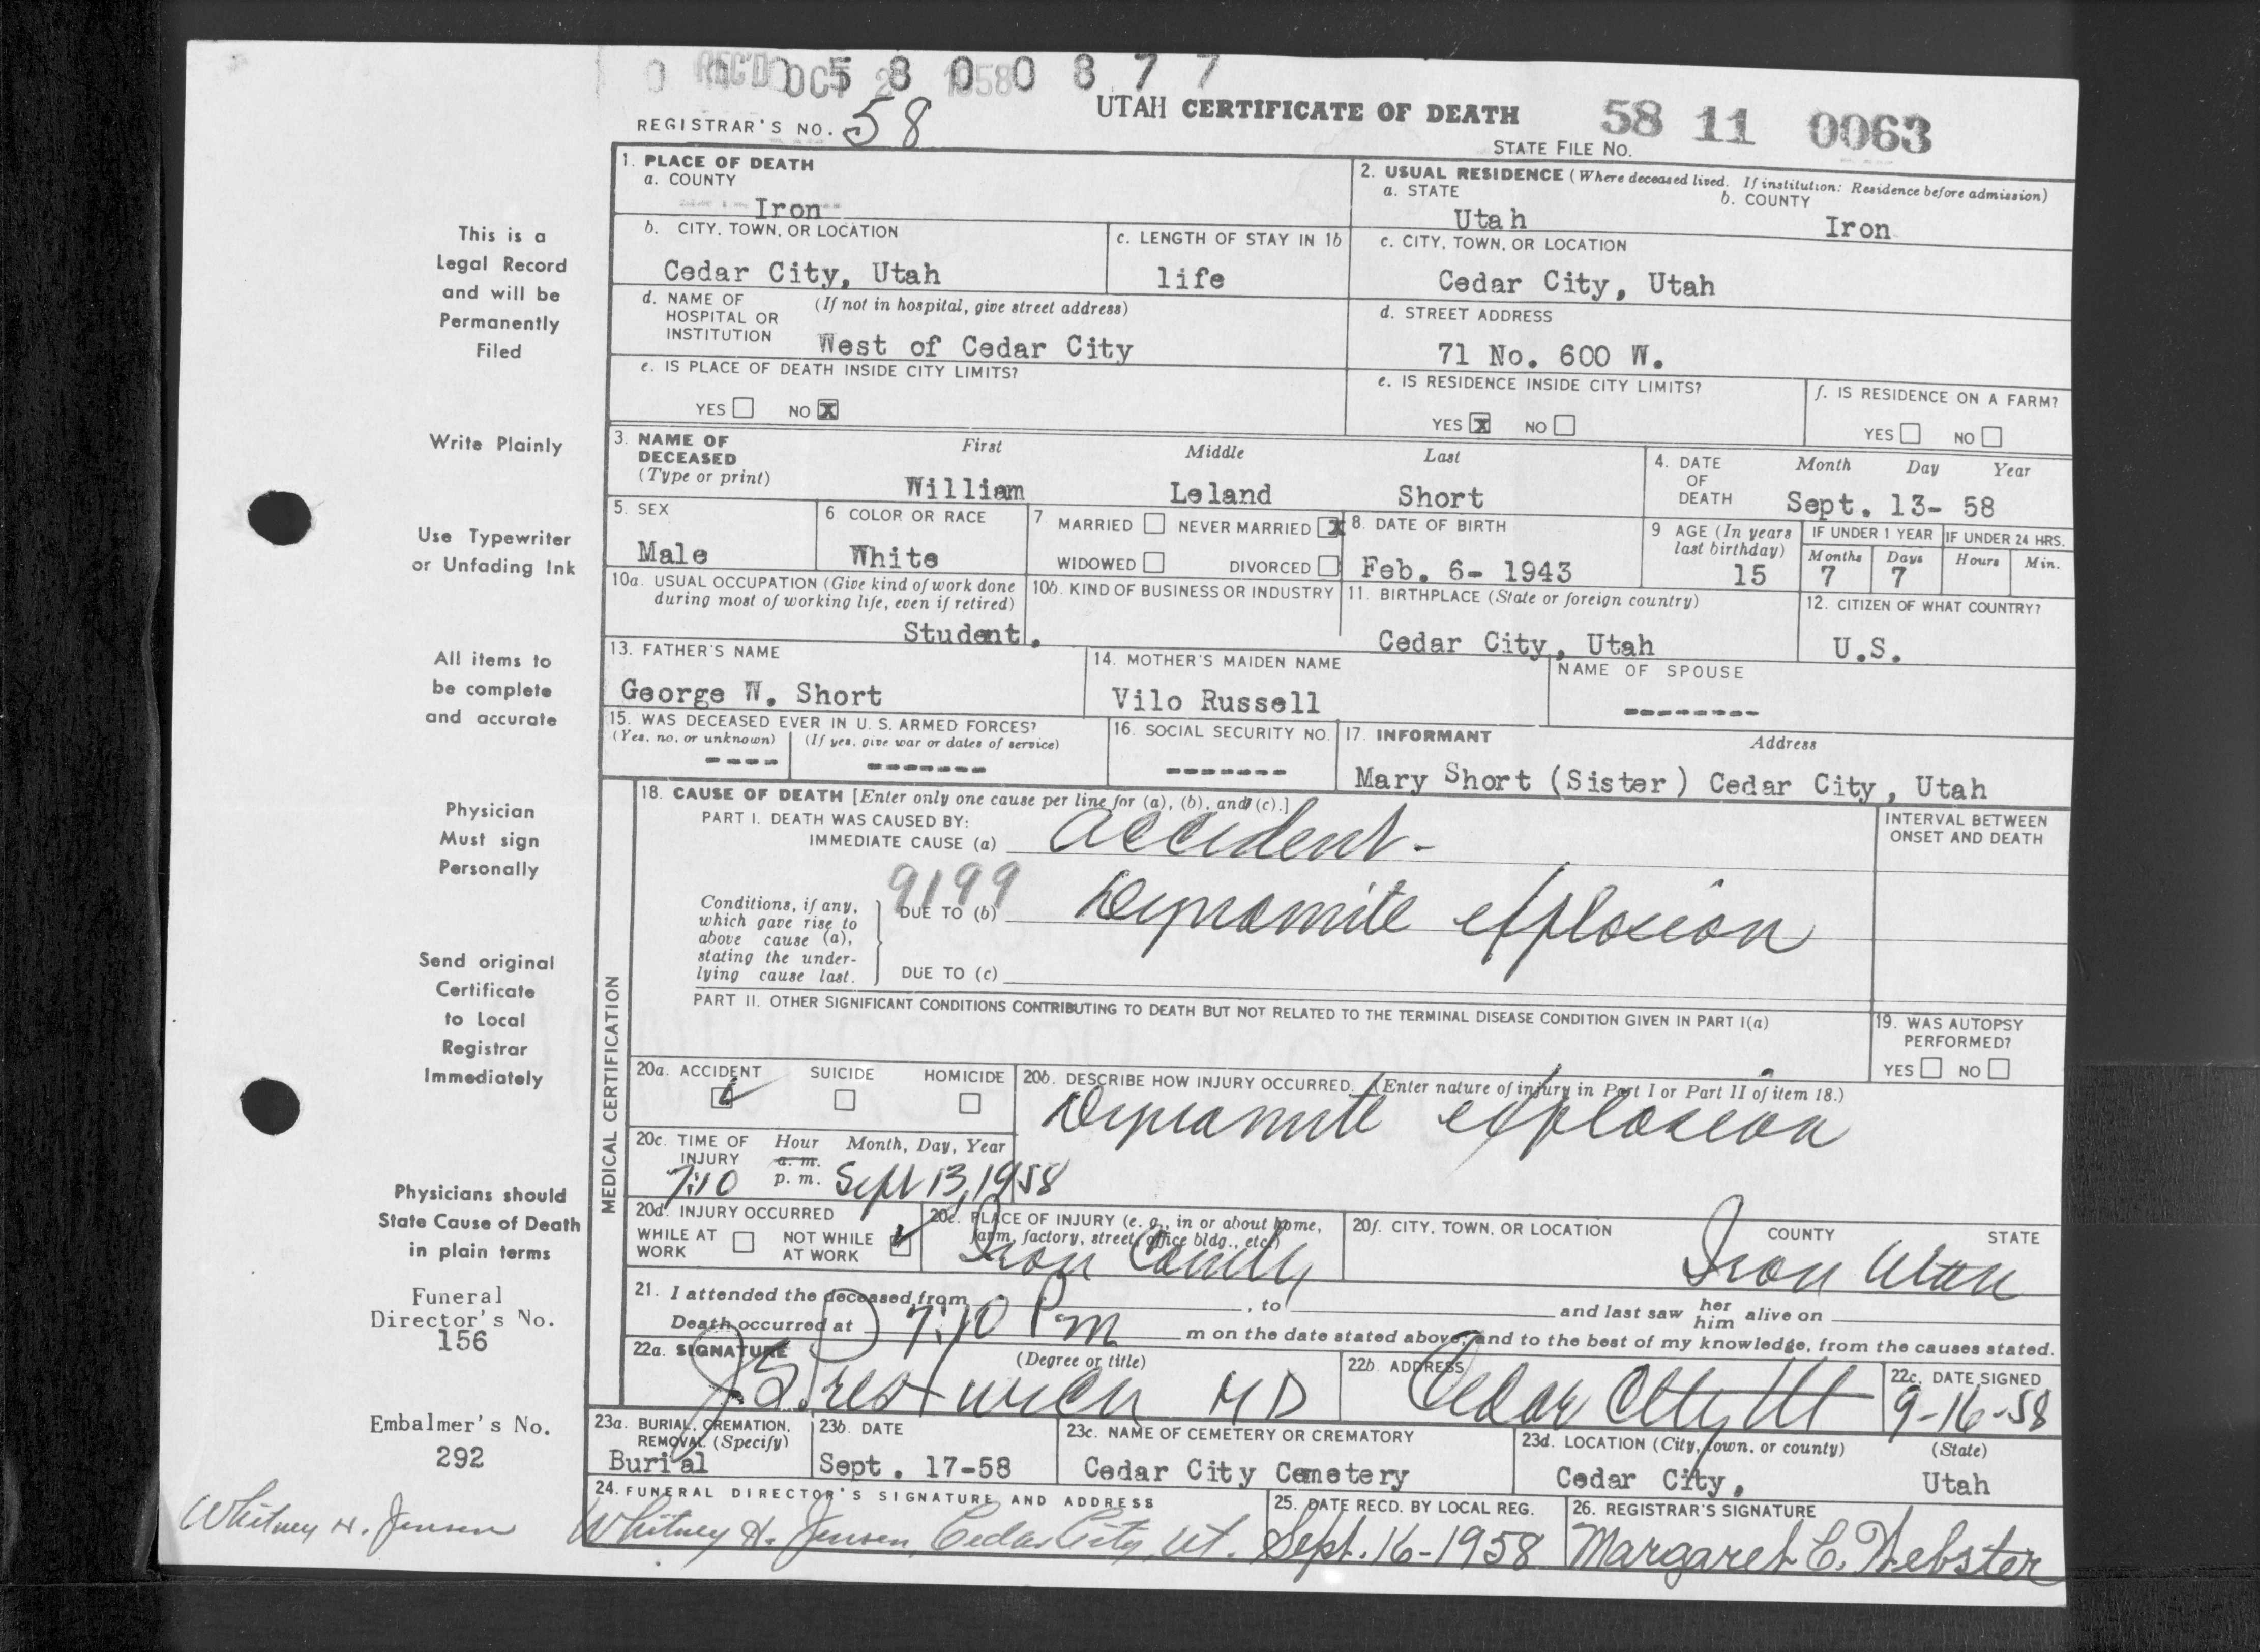 REC'D OCT 2 1958
5 8 0 0 8 7 7
UTAH CERTIFICATE OF DEATH
58 11 0063
REGISTRAR'S NO. 58
STATE FILE NO.
1. PLACE OF DEATH
a. COUNTY
Iron
2. USUAL RESIDENCE (Where deceased lived. If institution: Residence before admission)
a. STATE b. COUNTY
Utah Iron
b. CITY, TOWN, OR LOCATION
Cedar City, Utah
c. LENGTH OF STAY IN 1b
life
c. CITY, TOWN, OR LOCATION
Cedar City, Utah
d. NAME OF HOSPITAL OR INSTITUTION (If not in hospital, give street address)
West of Cedar City
d. STREET ADDRESS
71 No. 600 W.
e. IS PLACE OF DEATH INSIDE CITY LIMITS?
YES NO X
e. IS RESIDENCE INSIDE CITY LIMITS?
YES X NO
f. IS RESIDENCE ON A FARM?
YES NO
3. NAME OF DECEASED (Type or print)
First Middle Last
William Leland Short
4. DATE OF DEATH
Month Day Year
Sept. 13- 58
5. SEX
Male
6 COLOR OR RACE
White
7. MARRIED NEVER MARRIED X
WIDOWED DIVORCED
8. DATE OF BIRTH
Feb. 6- 1943
9 AGE (In years last birthday)
15
IF UNDER 1 YEAR
Months Days
7 7
IF UNDER 24 HRS.
Hours Min.
10a. USUAL OCCUPATION (Give kind of work done during most of working life, even if retired)
Student.
10b. KIND OF BUSINESS OR INDUSTRY
11. BIRTHPLACE (State or foreign country)
Cedar City, Utah
12. CITIZEN OF WHAT COUNTRY?
U.S.
13. FATHER'S NAME
George W. Short
14. MOTHER'S MAIDEN NAME
Vilo Russell
NAME OF SPOUSE
--------
15. WAS DECEASED EVER IN U. S. ARMED FORCES?
(Yes, no, or unknown) (If yes, give war or dates of service)
---- -------
16. SOCIAL SECURITY NO.
-------
17. INFORMANT Address
Mary Short (Sister) Cedar City, Utah
MEDICAL CERTIFICATION
18. CAUSE OF DEATH [Enter only one cause per line for (a), (b), and (c).]
PART I. DEATH WAS CAUSED BY:
IMMEDIATE CAUSE (a) accident -
INTERVAL BETWEEN ONSET AND DEATH
9199
Conditions, if any, which gave rise to above cause (a), stating the underlying cause last.
DUE TO (b) Dynamite explosion
DUE TO (c)
PART II. OTHER SIGNIFICANT CONDITIONS CONTRIBUTING TO DEATH BUT NOT RELATED TO THE TERMINAL DISEASE CONDITION GIVEN IN PART I(a)
19. WAS AUTOPSY PERFORMED?
YES NO
20a. ACCIDENT SUICIDE HOMICIDE
20b. DESCRIBE HOW INJURY OCCURRED. (Enter nature of injury in Part I or Part II of item 18.)
Dynamite explosion
20c. TIME OF INJURY Hour Month, Day, Year
a. m.
7:10 p. m. Sept 13, 1958
20d. INJURY OCCURRED
WHILE AT WORK NOT WHILE AT WORK
20e. PLACE OF INJURY (e. g., in or about home, farm, factory, street, office bldg., etc.)
Iron County
20f. CITY, TOWN, OR LOCATION COUNTY STATE
Iron Utah
21. I attended the deceased from , to and last saw her him alive on
Death occurred at 7:10 Pm m on the date stated above, and to the best of my knowledge, from the causes stated.
22a. SIGNATURE (Degree or title)
J B Prestwich MD
22b. ADDRESS
Cedar City Ut
22c. DATE SIGNED
9-16-58
23a. BURIAL, CREMATION, REMOVAL (Specify)
Burial
23b. DATE
Sept. 17-58
23c. NAME OF CEMETERY OR CREMATORY
Cedar City Cemetery
23d. LOCATION (City, town, or county) (State)
Cedar City, Utah
24. FUNERAL DIRECTOR'S SIGNATURE AND ADDRESS
Whitney H. Jensen, Cedar City, Ut.
25. DATE RECD. BY LOCAL REG.
Sept. 16-1958
26. REGISTRAR'S SIGNATURE
Margaret C. Webster
This is a
Legal Record
and will be
Permanently
Filed
Write Plainly
Use Typewriter
or Unfading Ink
All items to
be complete
and accurate
Physician
Must sign
Personally
Send original
Certificate
to Local
Registrar
Immediately
Physicians should
State Cause of Death
in plain terms
Funeral
Director's No.
156
Embalmer's No.
292
Whitney H. Jensen